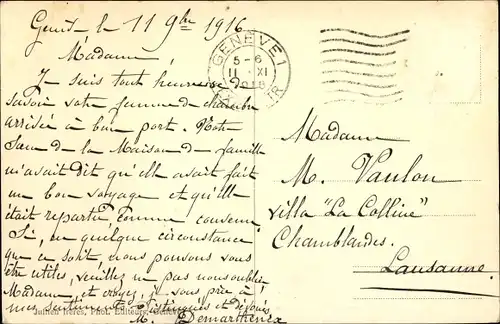 Genève le 11 9bre 1916
Madame,
Je suis tout heureuse
savoir votre femme de chambre
arrivée à bon port. Notre
Sœur de la Maison de famille
m'avait dit qu'elle avait fait
un bon voyage et qu'elle
était repartie comme convenu.
Si, en quelque circonstance
que ce soit nous pouvons vous
être utiles, veuillez ne pas nous oublier
Madame et croyez, je vous prie, à
mes sentiments distingués et dévoués
M. Demartheray
GENÈVE 1
5-6
11 XI
1916
Madame
M. Vaulon
villa "La Colline"
Chamblandes.
Lausanne.
Jullien frères, Phot. Editeurs, Genève